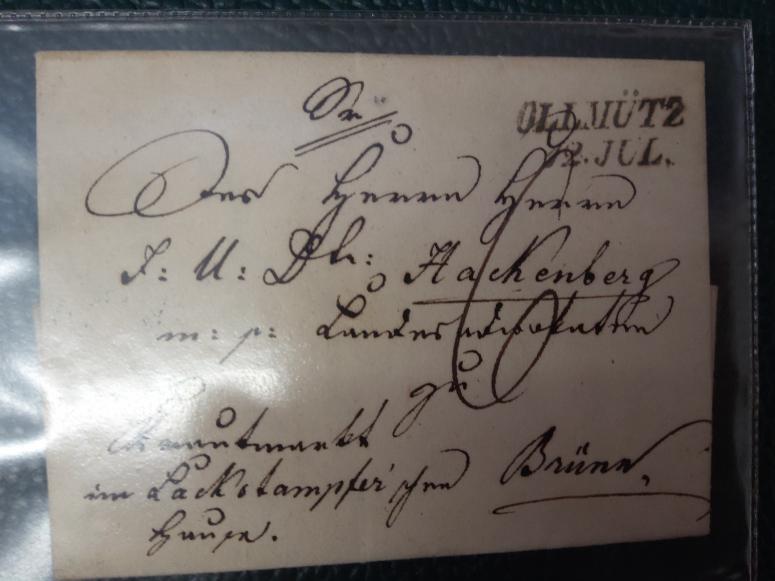 OLLMÜTZ
12. JUL.
Sr
Des Herrn Herrn
J: U: Dr: Hackenberg
m: p: Landesadvokaten
zu
Krautmarkt
im Lackstampfer'schen Brünn,
Hause.
6